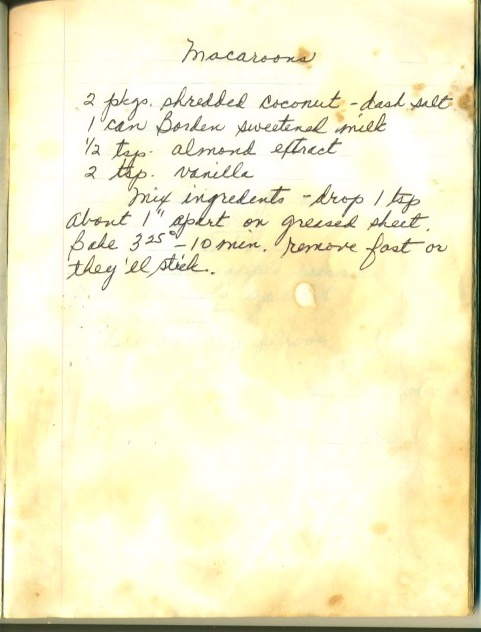 Macaroons
2 pkgs. shredded coconut - dash salt
1 can Borden sweetened milk
1/2 tsp. almond extract
2 tsp. vanilla
Mix ingredients - drop 1 tsp
about 1" apart on greased sheet.
Bake 325° - 10 min. remove fast or
they'll stick.